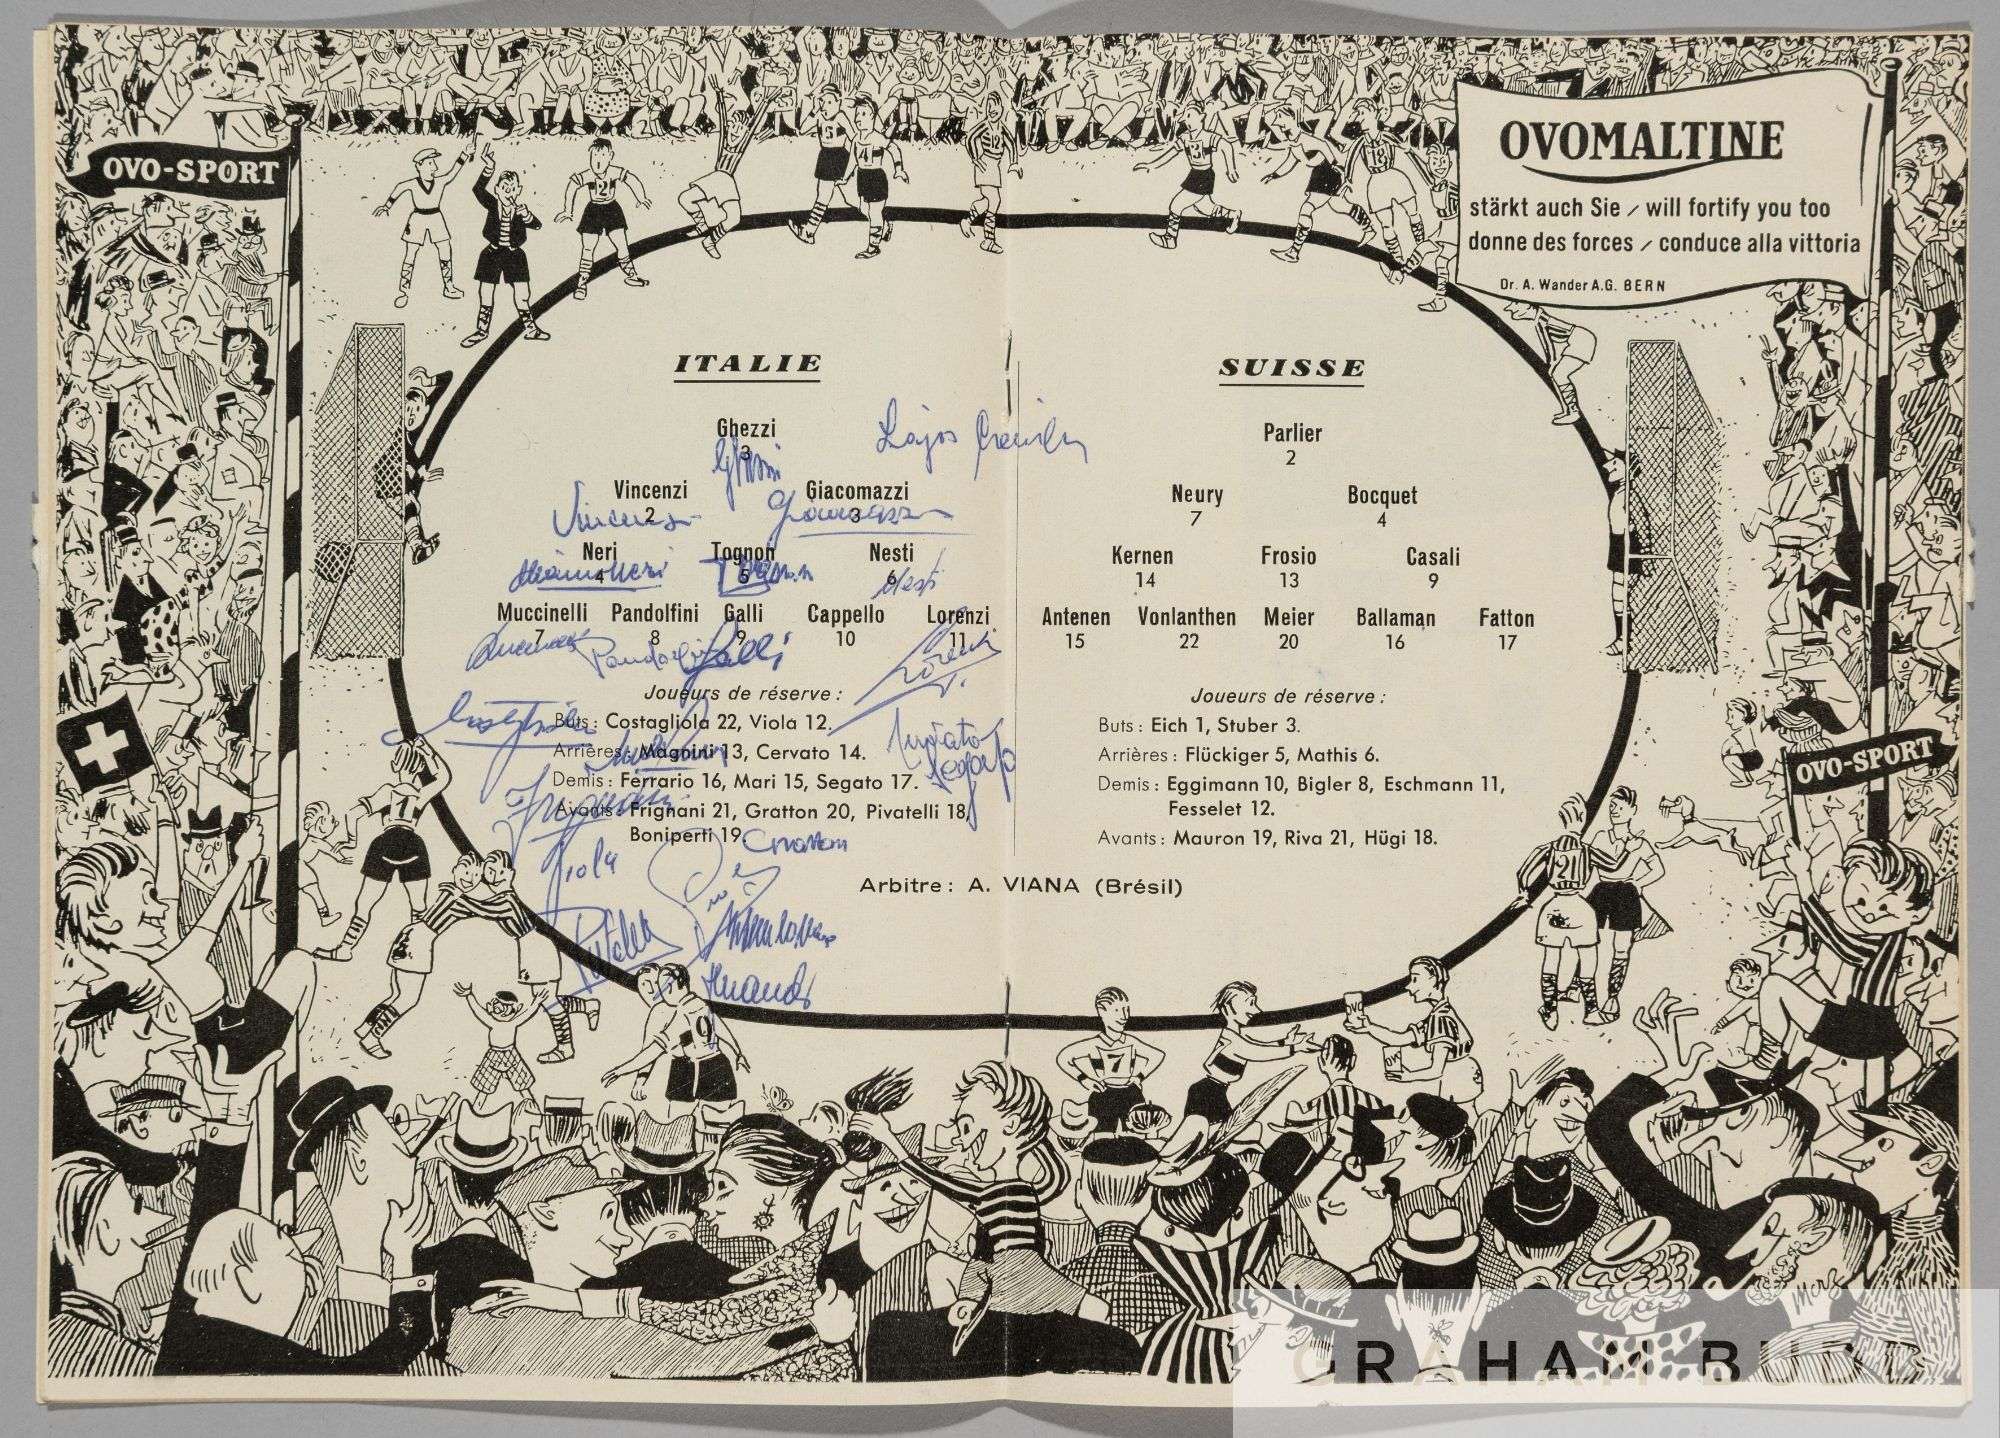 OVO-SPORT
OVOMALTINE
stärkt auch Sie / will fortify you too
donne des forces / conduce alla vittoria
Dr. A. Wander A.G. BERN
ITALIE
Ghezzi
3
Vincenzi Giacomazzi
2 3
Neri Tognon Nesti
4 5 6
Muccinelli Pandolfini Galli Cappello Lorenzi
7 8 9 10 11
Joueurs de réserve :
Buts : Costagliola 22, Viola 12.
Arrières : Magnini 13, Cervato 14.
Demis : Ferrario 16, Mari 15, Segato 17.
Avants : Frignani 21, Gratton 20, Pivatelli 18,
Boniperti 19.
SUISSE
Parlier
2
Neury Bocquet
7 4
Kernen Frosio Casali
14 13 9
Antenen Vonlanthen Meier Ballaman Fatton
15 22 20 16 17
Joueurs de réserve :
Buts : Eich 1, Stuber 3.
Arrières : Flückiger 5, Mathis 6.
Demis : Eggimann 10, Bigler 8, Eschmann 11,
Fesselet 12.
Avants : Mauron 19, Riva 21, Hügi 18.
Arbitre : A. VIANA (Brésil)
Lajos
Ghezzi
Vincenzi
Giacomazzi
Nesti
Galli
Lorenzi
Segato
Frignani
Viola
Gratton
OVO-SPORT
GRAHAM BUDD